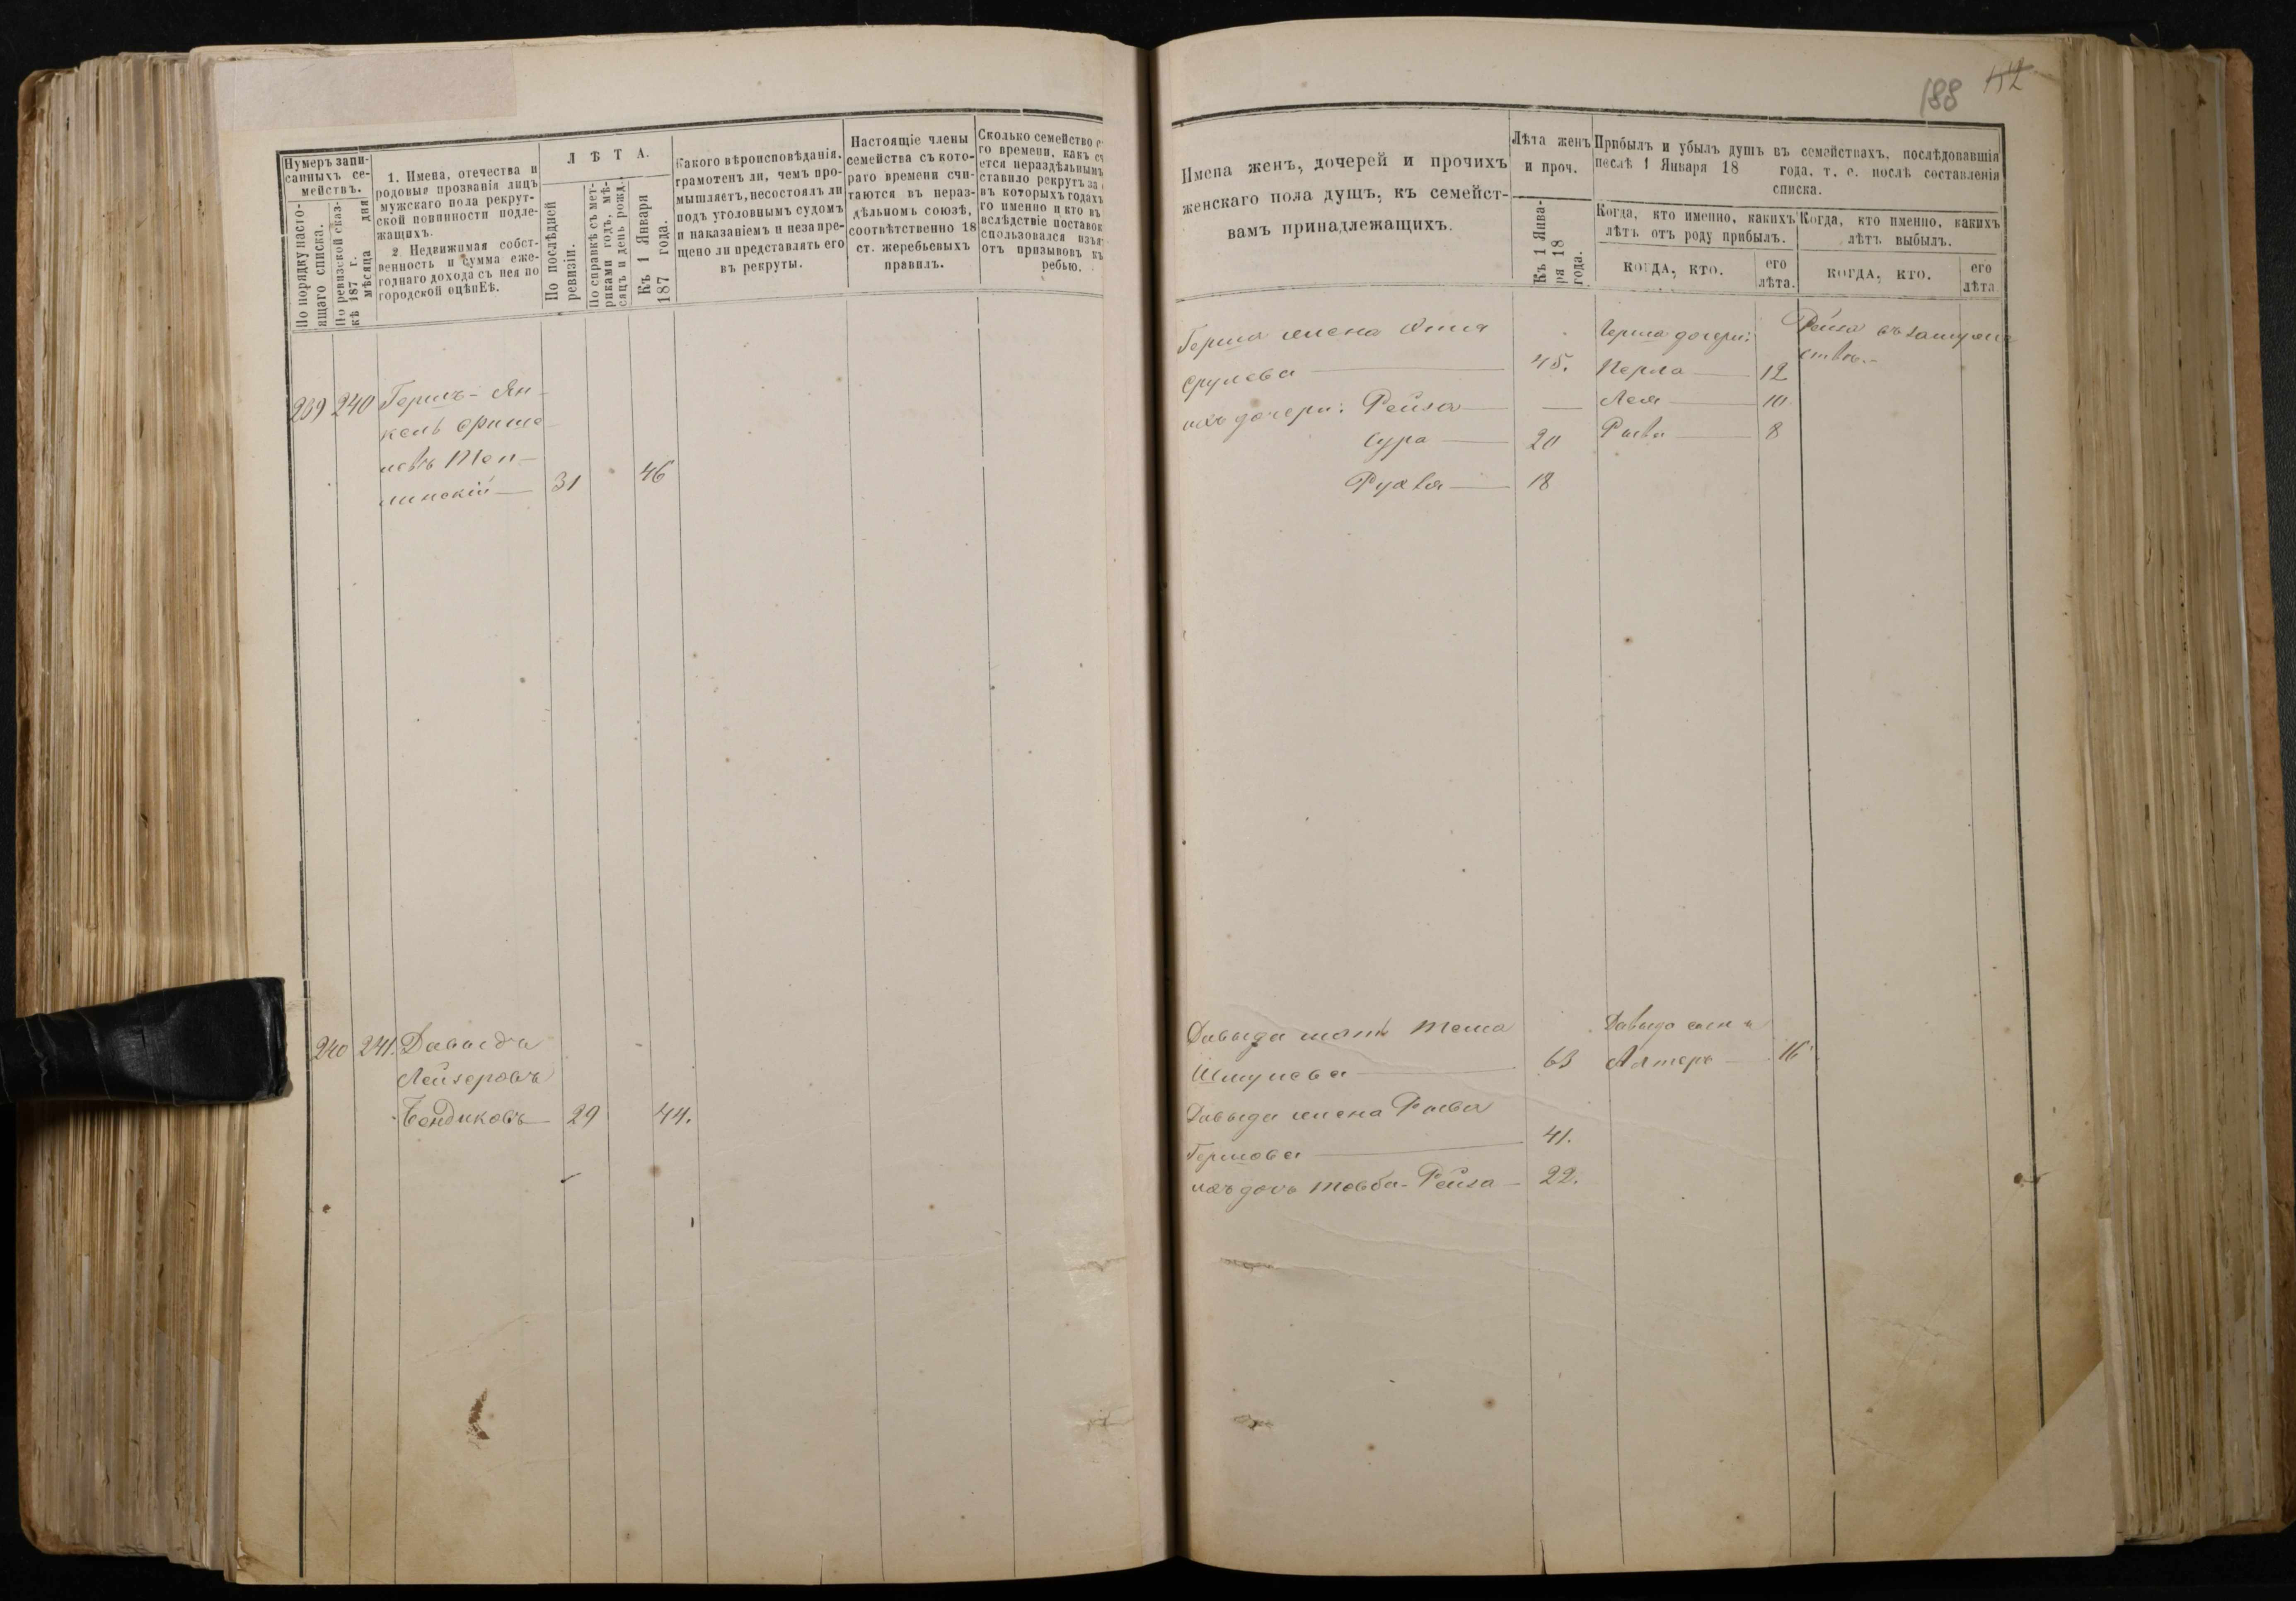 188
Нумеръ запи-
санныхъ се-
мействъ.
По порядку насто-
ящаго списка.
По ревизской сказ-
кѣ 187 г.
мѣсяца дня
1. Имена, отечества и
родовыя прозванія лицъ
мужскаго пола рекрут-
ской повинности подле-
жащихъ.
2. Недвижимая собст-
венность и сумма еже-
годнаго дохода съ нея по
городской оцѣнЕѣ.
Л Ѣ Т А.
По послѣдней
ревизіи.
По справкѣ съ мет-
риками годъ, мѣ-
сяцъ и день рожд.
Къ 1 Января
187 года.
Какого вѣроисповѣданія.
грамотенъ ли, чемъ про-
мышляетъ, несостоялъ ли
подъ уголовнымъ судомъ
и наказаніемъ и неза пре-
щено ли представлять его
въ рекруты.
Настоящіе члены
семейства съ кото-
раго времени счи-
таются въ нераз-
дѣльномъ союзѣ,
соотвѣтственно 18
ст. жеребьевыхъ
правилъ.
Сколько семейство с
го времени, какъ сч
ется нераздѣльнымъ
ставило рекрутъ за
въ которыхъ годахъ
го именно и кто въ
вслѣдствіе поставок
спользовался изъя
отъ призывовъ къ
ребью.
239 240 Гершъ-Ян-
кель Срулѣ
левъ
линскій 31 46
240 241. Давыдъ
Лейзеровъ
Бендиковъ 29 44.
Имена женъ, дочерей и прочихъ
женскаго пола душъ, къ семейст-
вамъ принадлежащихъ.
Лѣта женъ
и проч.
Къ 1 Янва-
ря 18
года.
Прибылъ и убылъ душъ въ семействахъ, послѣдовавшія
послѣ 1 Января 18 года, т. е. послѣ составленія
списка.
Когда, кто именно, какихъ
лѣтъ отъ роду прибылъ.
когда, кто.
его
лѣта.
Когда, кто именно, какихъ
лѣтъ выбылъ.
когда, кто.
его
лѣта.
Герша жена Этля
Срулева 45.
ихъ дочери: Рейза —
Сура 20
Рухля 18
Герша дочери:
Перла 12
Лея 10
Рыва 8
Рейза въ замуже
ствѣ.
Давыда мать
Шмулева 63
Давыда жена Рыва
Гершова 41.
ихъ дочь Товба-Рейза 22.
Давыда сынъ
Алтеръ 16